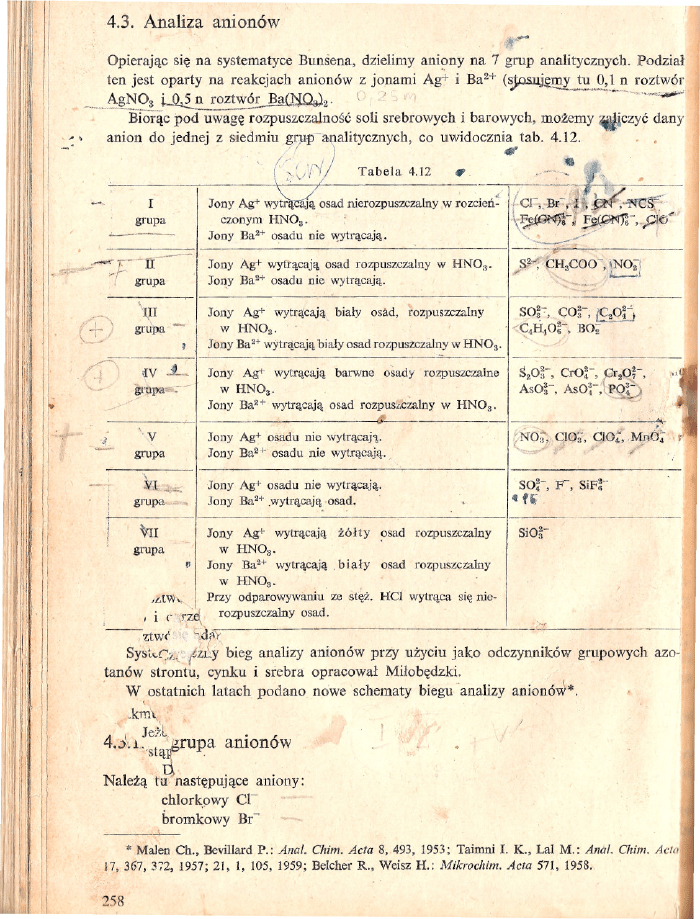 4.3. Analiza anionów
Opierając się na systematyce Bunsena, dzielimy aniony na 7 grup analitycznych. Podział
ten jest oparty na reakcjach anionów z jonami Ag⁺ i Ba²⁺ (stosujemy tu 0,1 n roztwór
AgNO₃ i 0,5 n roztwór Ba(NO₃)₂. 0,25 m
Biorąc pod uwagę rozpuszczalność soli srebrowych i barowych, możemy zaliczyć dany
anion do jednej z siedmiu grup analitycznych, co uwidocznia tab. 4.12.
Tabela 4.12
I grupa
Jony Ag⁺ wytrącają osad nierozpuszczalny w rozcień-
czonym HNO₃.
Jony Ba²⁺ osadu nie wytrącają.
Cl⁻, Br⁻, I⁻, CN⁻, NCS⁻
Fe(CN)₆³⁻, Fe(CN)₆⁴⁻, ClO⁻
II grupa
Jony Ag⁺ wytrącają osad rozpuszczalny w HNO₃.
Jony Ba²⁺ osadu nie wytrącają.
S²⁻, CH₃COO⁻, NO₂⁻
III grupa
Jony Ag⁺ wytrącają biały osad, rozpuszczalny
w HNO₃.
Jony Ba²⁺ wytrącają biały osad rozpuszczalny w HNO₃.
SO₃²⁻, CO₃²⁻, C₂O₄²⁻,
C₄H₄O₆²⁻, BO₂⁻
IV grupa
Jony Ag⁺ wytrącają barwne osady rozpuszczalne
w HNO₃.
Jony Ba²⁺ wytrącają osad rozpuszczalny w HNO₃.
S₂O₃²⁻, CrO₄²⁻, Cr₂O₇²⁻,
AsO₃³⁻, AsO₄³⁻, PO₄³⁻
V grupa
Jony Ag⁺ osadu nie wytrącają.
Jony Ba²⁺ osadu nie wytrącają.
NO₃⁻, ClO₃⁻, ClO₄⁻, MnO₄⁻
VI grupa
Jony Ag⁺ osadu nie wytrącają.
Jony Ba²⁺ wytrącają osad.
SO₄²⁻, F⁻, SiF₆²⁻
VII grupa
Jony Ag⁺ wytrącają żółty osad rozpuszczalny
w HNO₃.
Jony Ba²⁺ wytrącają biały osad rozpuszczalny
w HNO₃.
Przy odparowywaniu ze stęż. HCl wytrąca się nie-
rozpuszczalny osad.
SiO₃²⁻
bieg analizy anionów przy użyciu jako odczynników grupowych azo-
tanów strontu, cynku i srebra opracował Miłobędzki.
W ostatnich latach podano nowe schematy biegu analizy anionów*.
grupa anionów
Należą tu następujące aniony:
chlorkowy Cl⁻
bromkowy Br⁻
* Malen Ch., Bevillard P.: Anal. Chim. Acta 8, 493, 1953; Taimni I. K., Lal M.: Anal. Chim. Acta
17, 367, 372, 1957; 21, 1, 105, 1959; Belcher R., Weisz H.: Mikrochim. Acta 571, 1958.
258